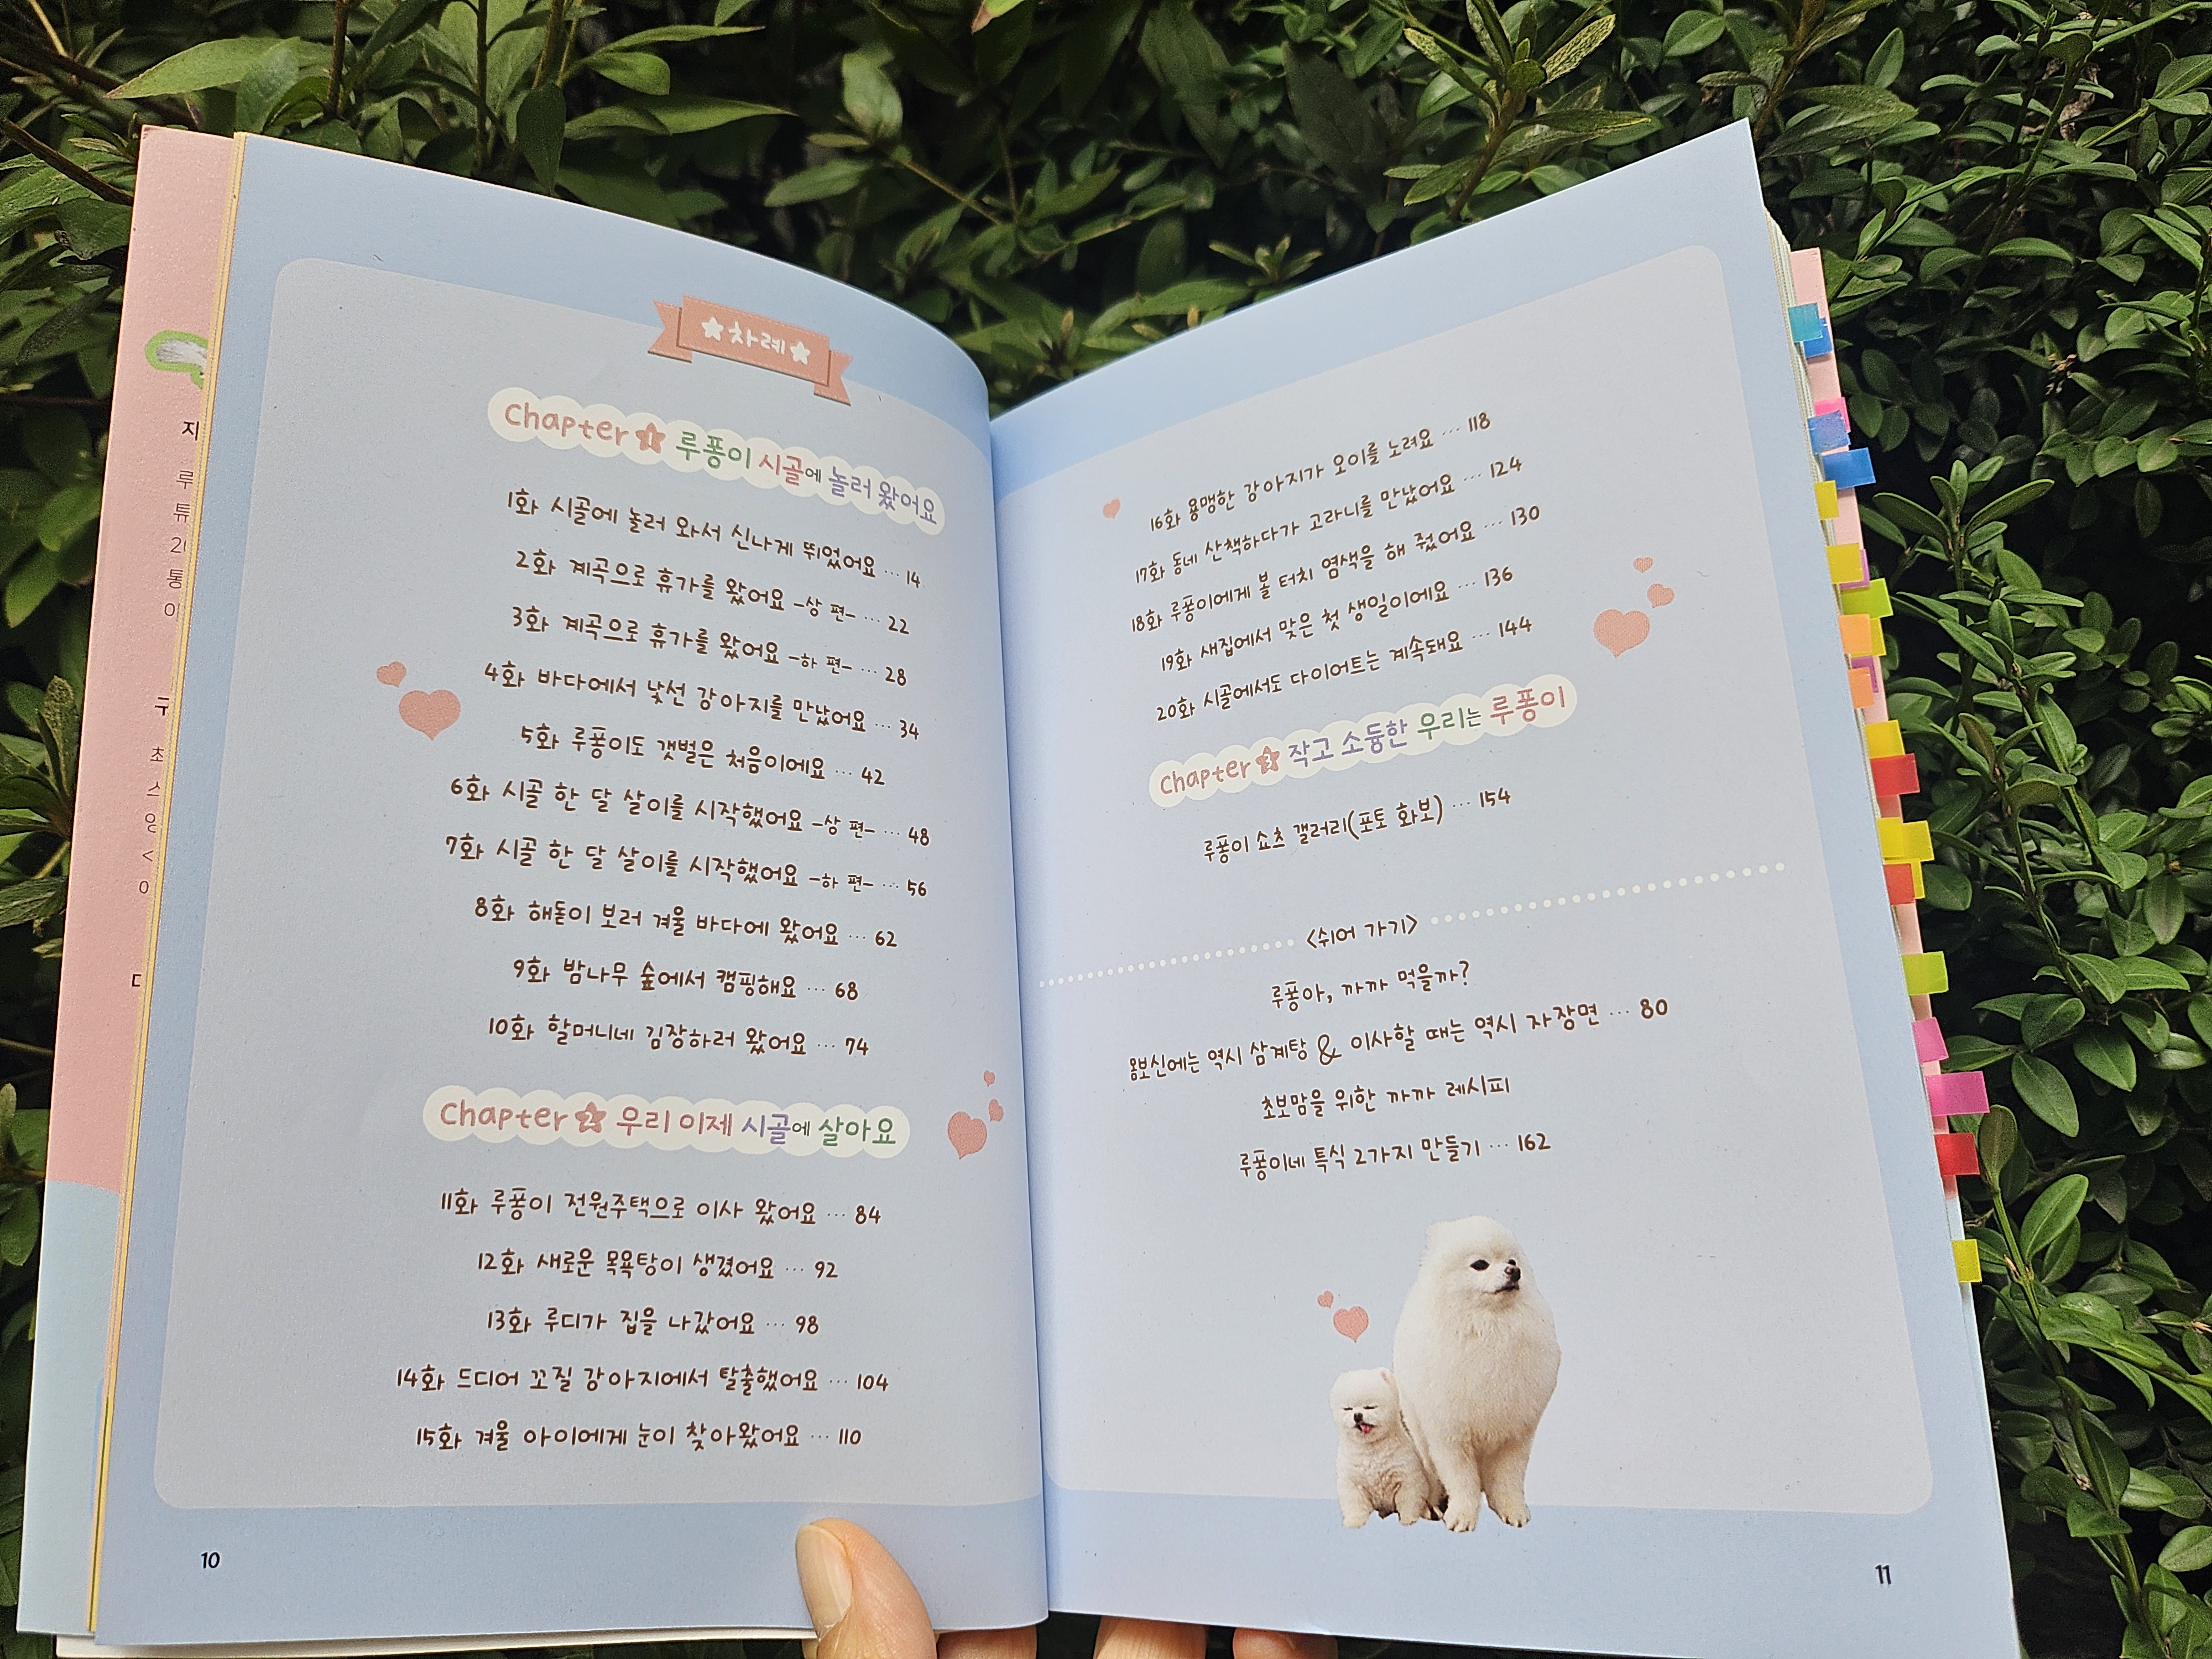 차례
Chapter 1 루퐁이 시골에 놀러 왔어요
1화 시골에 놀러 와서 신나게 뛰었어요 … 14
2화 계곡으로 휴가를 왔어요 -상 편- … 22
3화 계곡으로 휴가를 왔어요 -하 편- … 28
4화 바다에서 낯선 강아지를 만났어요 … 34
5화 루퐁이도 갯벌은 처음이에요 … 42
6화 시골 한 달 살이를 시작했어요 -상 편- … 48
7화 시골 한 달 살이를 시작했어요 -하 편- … 56
8화 해돋이 보러 겨울 바다에 왔어요 … 62
9화 밤나무 숲에서 캠핑해요 … 68
10화 할머니네 김장하러 왔어요 … 74
Chapter 2 우리 이제 시골에 살아요
11화 루퐁이 전원주택으로 이사 왔어요 … 84
12화 새로운 목욕탕이 생겼어요 … 92
13화 루디가 집을 나갔어요 … 98
14화 드디어 꼬질 강아지에서 탈출했어요 … 104
15화 겨울 아이에게 눈이 찾아왔어요 … 110
10
16화 용맹한 강아지가 오이를 노려요 … 118
17화 동네 산책하다가 고라니를 만났어요 … 124
18화 루퐁이에게 볼 터치 염색을 해 줬어요 … 130
19화 새집에서 맞은 첫 생일이에요 … 136
20화 시골에서도 다이어트는 계속돼요 … 144
Chapter 3 작고 소듕한 우리는 루퐁이
루퐁이 쇼츠 갤러리(포토 화보) … 154
<쉬어 가기>
루퐁아, 까까 먹을까?
몸보신에는 역시 삼계탕 & 이사할 때는 역시 자장면 … 80
초보맘을 위한 까까 레시피
루퐁이네 특식 2가지 만들기 … 162
11